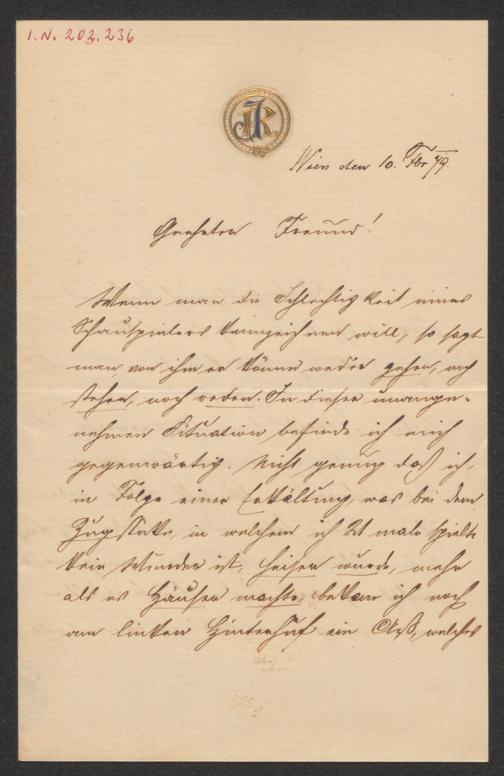 I.N. 202.236
JR
Wien den 10. Fbr 79.
Geehrter Freund!
Wenn man die Schlechtigkeit eines
Schauspielers kennzeichnen will, so sagt
man von ihm er könne weder gehen, noch
stehen, noch reden. In dieser unange-
nehmen Situation befinde ich mich
gegenwärtig. Nicht genug daß ich
in Folge einer Erkältung, was bei dem
Zugstücke, in welchem ich 21 male spielte
kein Wunder ist, heiser wurde, mehr
als es Häuser machte, bekam ich noch
am linken Hinterhuf ein Aß, welches